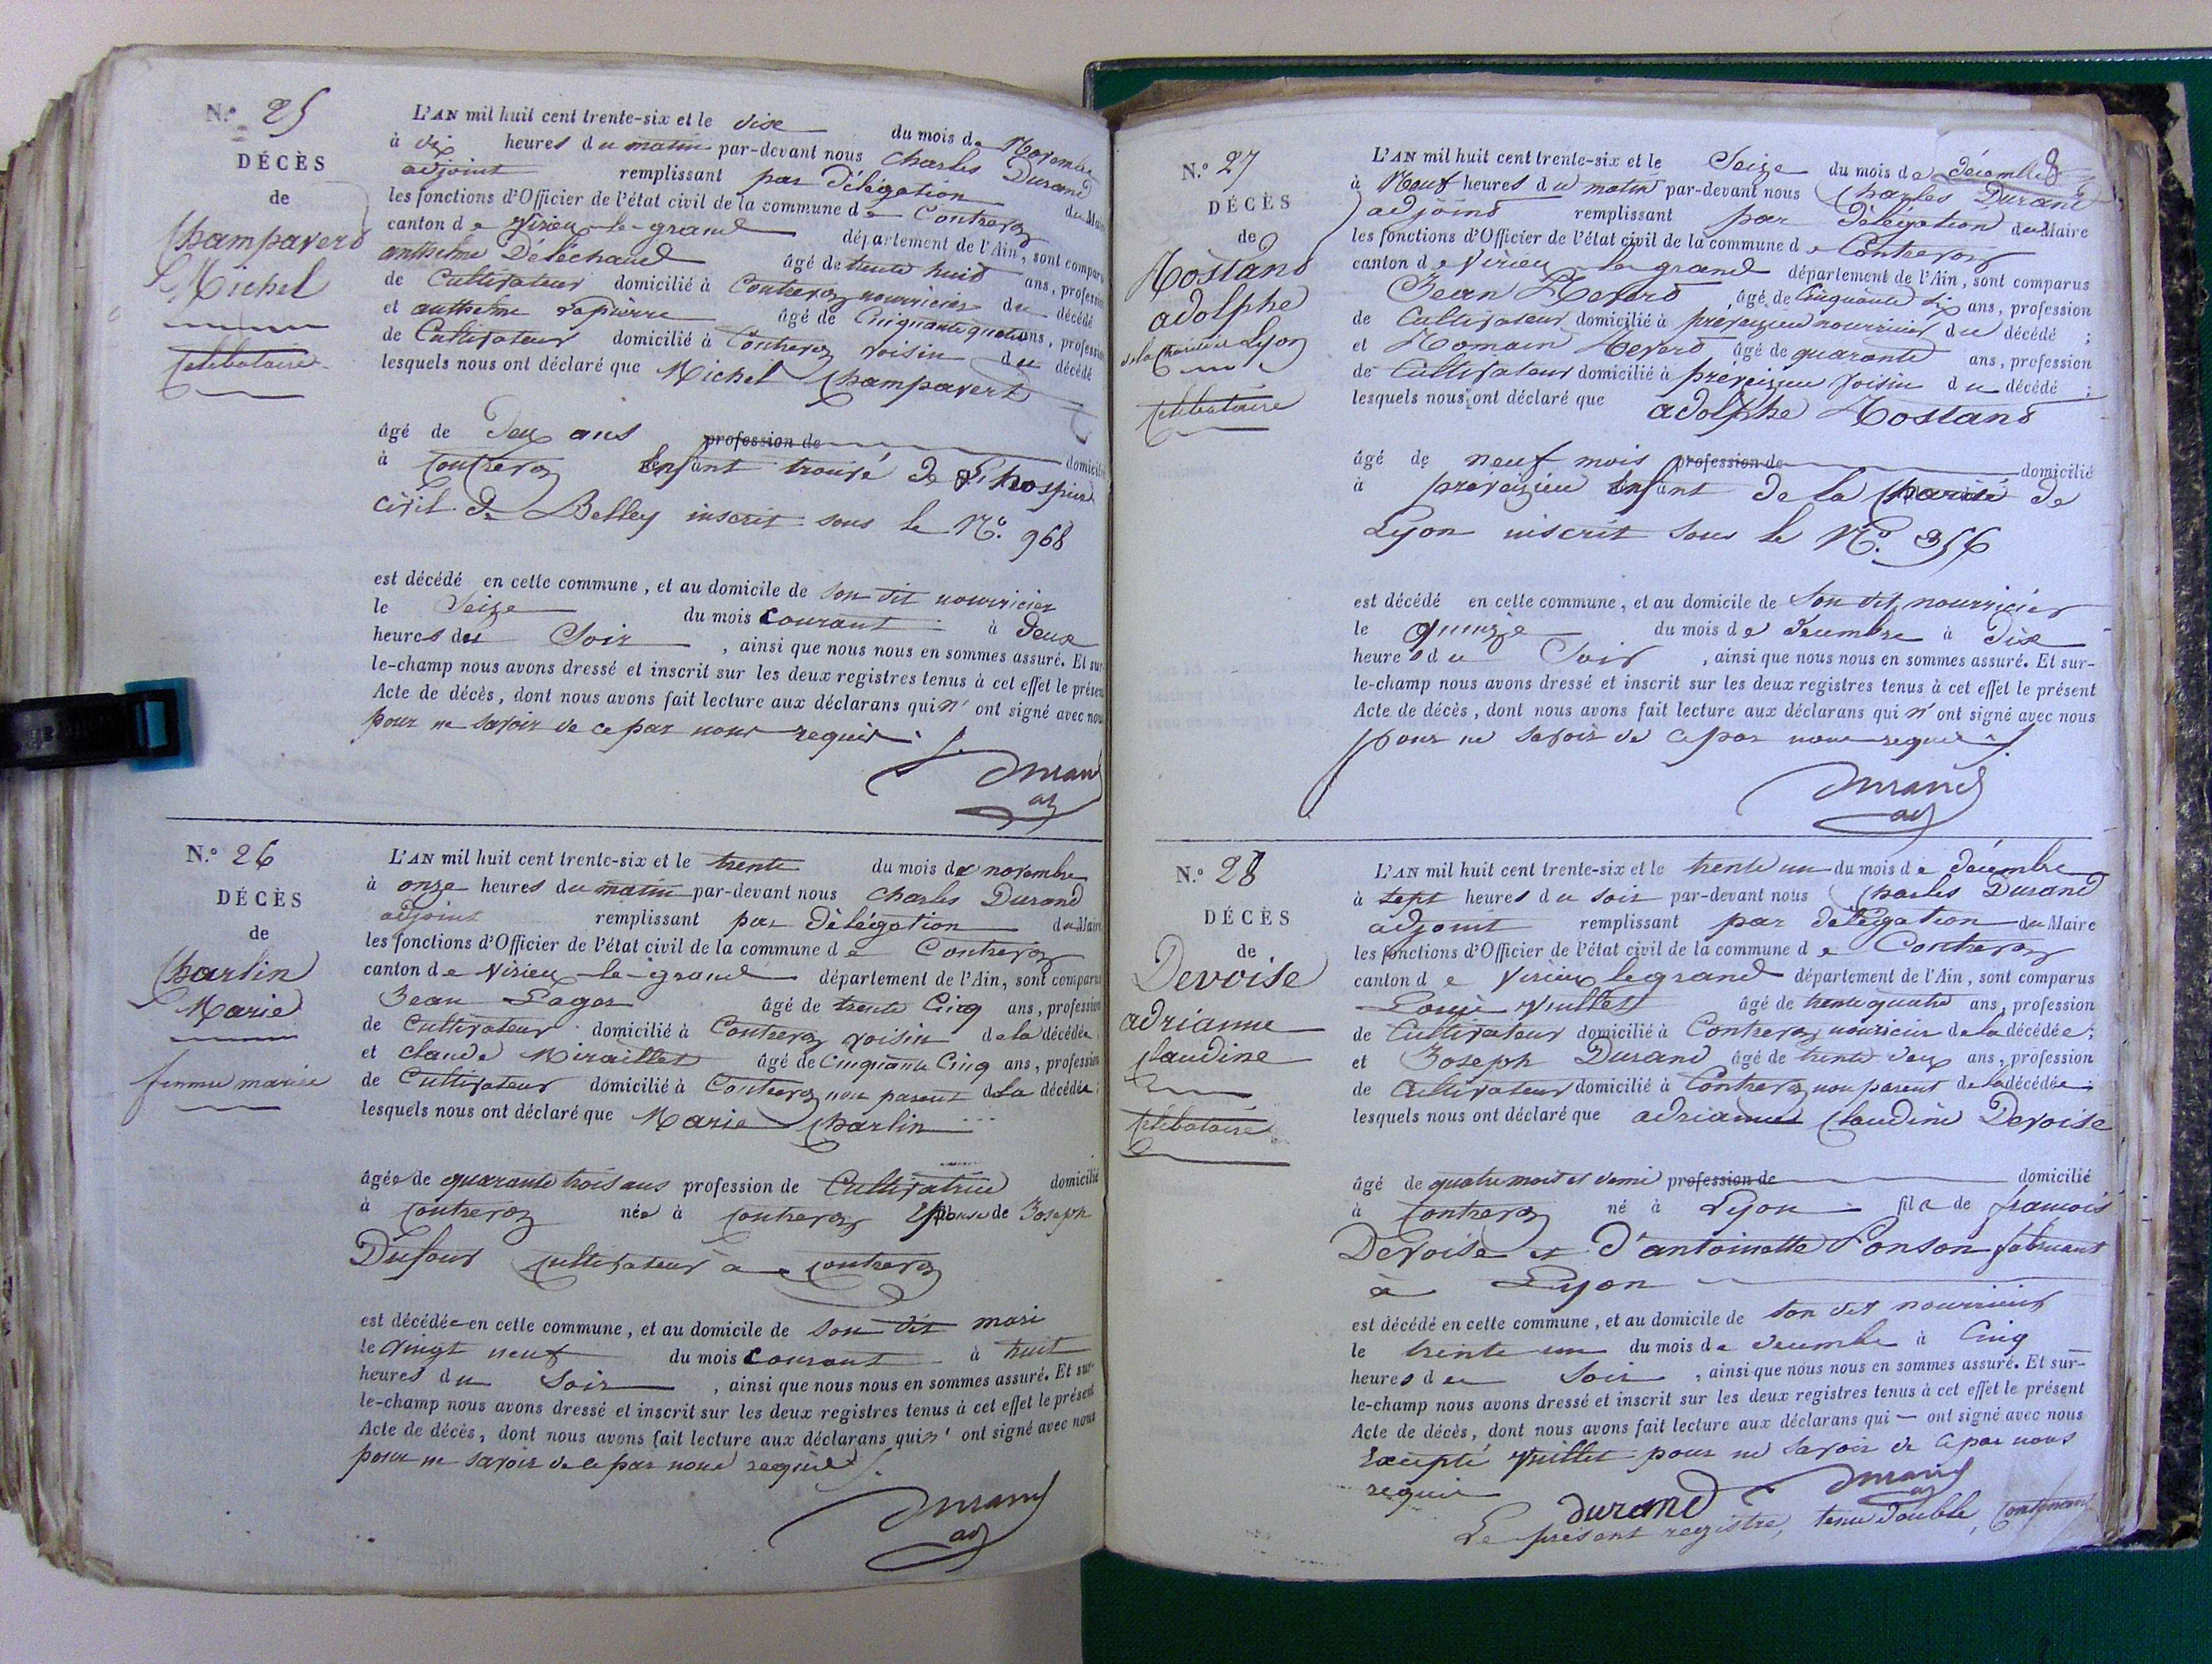 N.º 25
DÉCÈS
de
Champavert
Michel
célibataire
L'AN mil huit cent trente-six et le dixe du mois de Novembre
à dix heures du matin par-devant nous Charles Durand
adjoint remplissant par Délégation du Maire
les fonctions d'Officier de l'état civil de la commune de Contrevoz
canton de Virieu-le-grand département de l'Ain, sont comparus
anthelme Déléchaud âgé de trente huit ans, profession
de Cultivateur domicilié à Contrevoz nourricier du décédé
et anthelme Lapierre âgé de Cinquante quatre ans, profession
de Cultivateur domicilié à Contrevoz voisin du décédé
lesquels nous ont déclaré que Michel Champavert
âgé de Deux ans profession de domicilié
à Contrevoz Enfant trouvé de L'hospice
civil de Belley inscrit sous le Nº. 968
est décédé en cette commune, et au domicile de son dit nourricier
le Seize du mois courant à Deux
heures du Soir, ainsi que nous nous en sommes assuré. Et sur-
le-champ nous avons dressé et inscrit sur les deux registres tenus à cet effet le présent
Acte de décès, dont nous avons fait lecture aux déclarans qui n'ont signé avec nous
pour ne savoir de ce par nous requis.
Durand
adj
N.º 26
DÉCÈS
de
Charlin
Marie
femme mariée
L'AN mil huit cent trente-six et le trente du mois de novembre
à onze heures du matin par-devant nous Charles Durand
adjoint remplissant par Délégation du Maire
les fonctions d'Officier de l'état civil de la commune de Contrevoz
canton de Virieu-le-grand département de l'Ain, sont comparus
Jean Pager âgé de trente Cinq ans, profession
de Cultivateur domicilié à Contrevoz voisin de la décédée
et claude Miraillet âgé de Cinquante Cinq ans, profession
de Cultivateur domicilié à Contrevoz non parent de la décédée;
lesquels nous ont déclaré que Marie Charlin
âgée de quarante trois ans profession de Cultivatrice domicilié
à Contrevoz née à Contrevoz Epouse de Joseph
Dufour Cultivateur à Contrevoz
est décédée en cette commune, et au domicile de Son dit mari
le vingt neuf du mois Courant à huit
heures du Soir, ainsi que nous nous en sommes assuré. Et sur-
le-champ nous avons dressé et inscrit sur les deux registres tenus à cet effet le présent
Acte de décès, dont nous avons fait lecture aux déclarans qui n'ont signé avec nous
pour ne savoir de ce par nous requis.
Durand
adj
8
N.º 27
DÉCÈS
de
Rostand
adolphe
de la Charité de Lyon
célibataire
L'AN mil huit cent trente-six et le Seize du mois de décembre
à Neuf heures du matin par-devant nous Charles Durand
adjoint remplissant par Délégation du Maire
les fonctions d'Officier de l'état civil de la commune de Contrevoz
canton de Virieu-le-grand département de l'Ain, sont comparus
Jean Revert, âgé de Cinquante dix ans, profession
de Cultivateur domicilié à préveizieu nourricier du décédé;
et Romain Revert âgé de quarante ans, profession
de Cultivateur domicilié à préveizieu voisin du décédé;
lesquels nous ont déclaré que adolphe Rostand
âgé de neuf mois profession de domicilié
à preveizieu Enfant de la Charité de
Lyon inscrit sous le Nº. 356
est décédé en cette commune, et au domicile de Son dit nourricier
le quinze du mois de décembre à Dix
heures du Soir, ainsi que nous nous en sommes assuré. Et sur-
le-champ nous avons dressé et inscrit sur les deux registres tenus à cet effet le présent
Acte de décès, dont nous avons fait lecture aux déclarans qui n'ont signé avec nous
pour ne savoir de ce par nous requis.
Durand
adj
N.º 28
DÉCÈS
de
Devoise
adrianne
Claudine
célibataire
L'AN mil huit cent trente-six et le trente un du mois de décembre
à sept heures du soir par-devant nous Charles Durand
adjoint remplissant par délégation du Maire
les fonctions d'Officier de l'état civil de la commune de Contrevoz
canton de Virieu le grand département de l'Ain, sont comparus
Louis Vuillet âgé de trente quatre ans, profession
de Cultivateur domicilié à Contrevoz nourricier de la décédée;
et Joseph Durand âgé de trente deux ans, profession
de Cultivateur domicilié à Contrevoz non parent de la décédée;
lesquels nous ont déclaré que adrianne Claudine Devoise
âgé de quatre mois et demi profession de domicilié
à Contrevoz né à Lyon fille de francois
Devoise et d'antoinette Ponson fabricant
à Lyon
est décédé en cette commune, et au domicile de son dit nourricier
le trente un du mois de décembre à Cinq
heures du Soir, ainsi que nous nous en sommes assuré. Et sur-
le-champ nous avons dressé et inscrit sur les deux registres tenus à cet effet le présent
Acte de décès, dont nous avons fait lecture aux déclarans qui — ont signé avec nous
Excepté Vuillet pour ne savoir de ce par nous
requis
durand Durand
adj
Le présent registre, tenu double, contenant